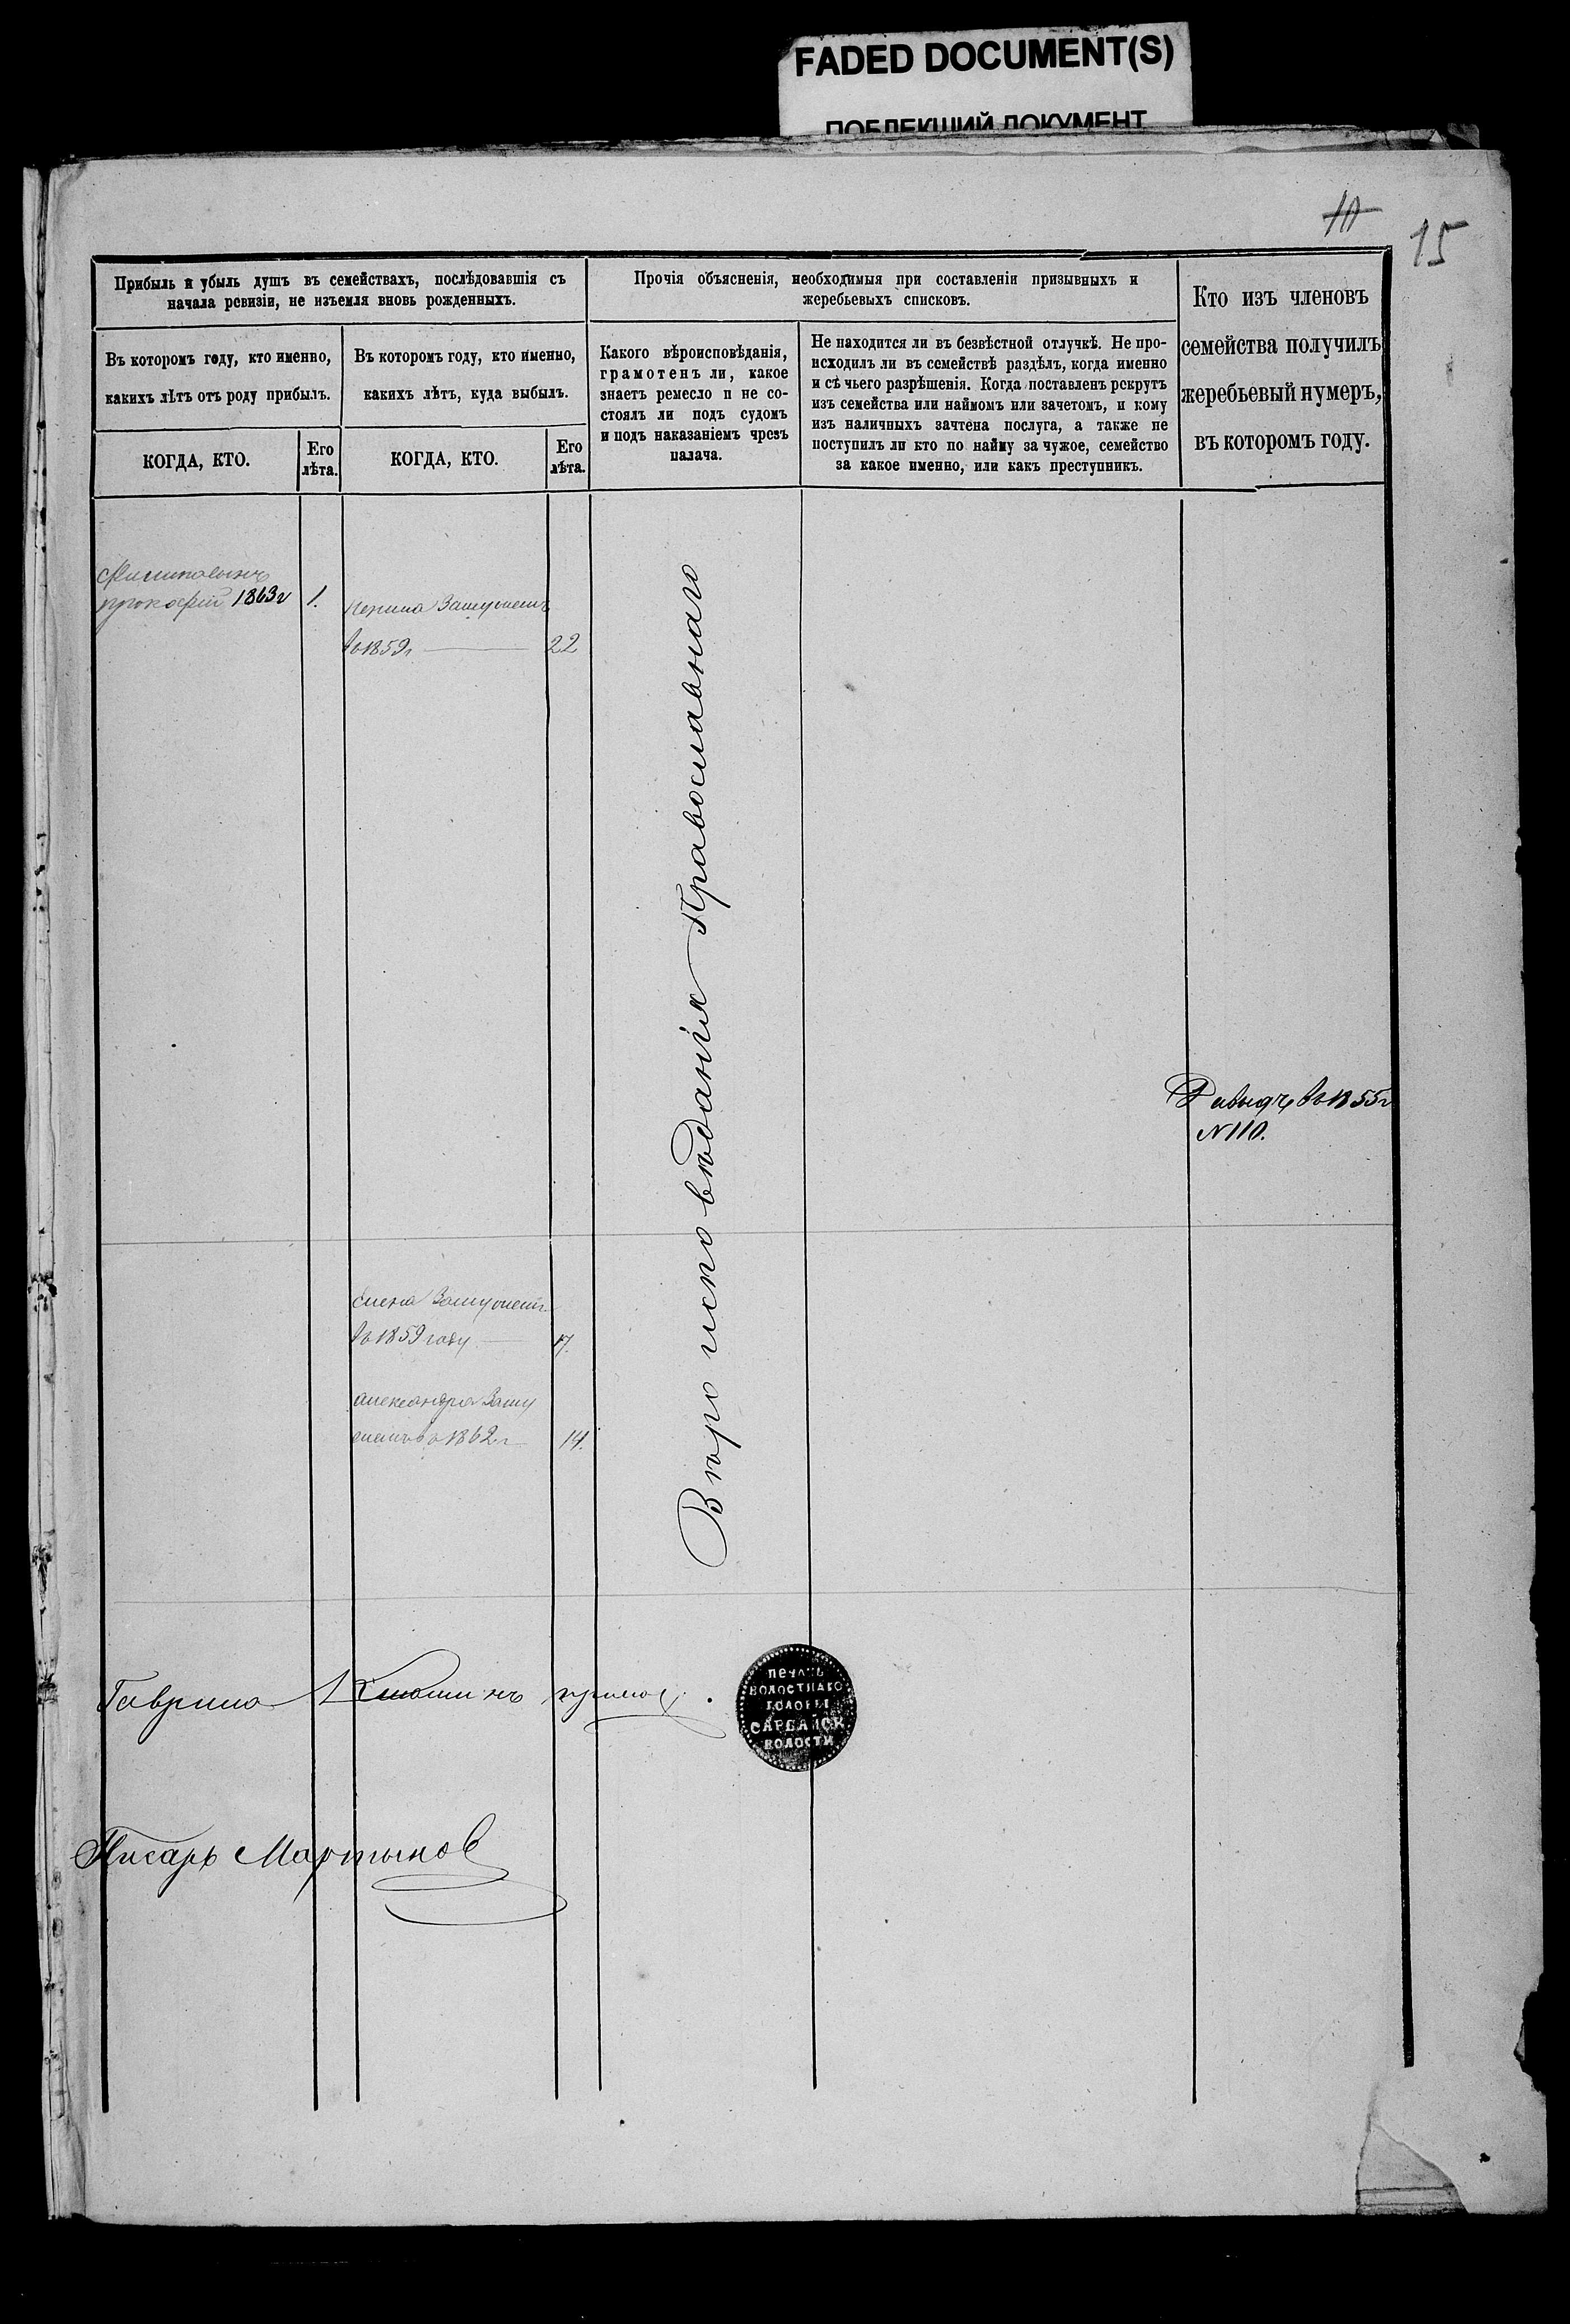 FADED DOCUMENT(S)
ПОБЛЕКШИЙ ДОКУМЕНТ
10
15
Прибыль и убыль душъ въ семействахъ, послѣдовавшія съ
начала ревизіи, не изъемля вновь рожденныхъ.
Въ которомъ году, кто именно,
какихъ лѣтъ отъ роду прибылъ.
КОГДА, КТО.
Его
лѣта.
Въ которомъ году, кто именно,
какихъ лѣтъ, куда выбылъ.
КОГДА, КТО.
Его
лѣта.
Прочія объясненія, необходимыя при составленіи призывныхъ и
жеребьевыхъ списковъ.
Какого вѣроисповѣданія,
грамотенъ ли, какое
знаетъ ремесло п не со-
стоялъ ли подъ судомъ
и подъ наказаніемъ чрезъ
палача.
Не находится ли въ безвѣстной отлучкѣ. Не про-
исходилъ ли въ семействѣ раздѣлъ, когда именно
и съ чьего разрѣшенія. Когда поставленъ рекрутъ
изъ семейства или наймомъ или зачетомъ, и кому
изъ наличныхъ зачтена послуга, а также не
поступилъ ли кто по найму за чужое, семейство
за какое именно, или какъ преступникъ.
Кто изъ членовъ
семейства получилъ
жеребьевый нумеръ,
въ которомъ году.
прокофий 1863г 1.
Замужемъ
въ 1859г 22
Вѣро исповѣданія Православнаго
Давыдъ въ 1855г
N 110.
Елена Замужемъ
въ 1859 году 17.
Александра Заму
жемъ въ 1862г 14.
Гаврила
ПЕЧАТЬ
ВОЛОСТНАГО
ГОЛОВЫ
САРБАЙСК
ВОЛОСТИ
Писарь Мартынов